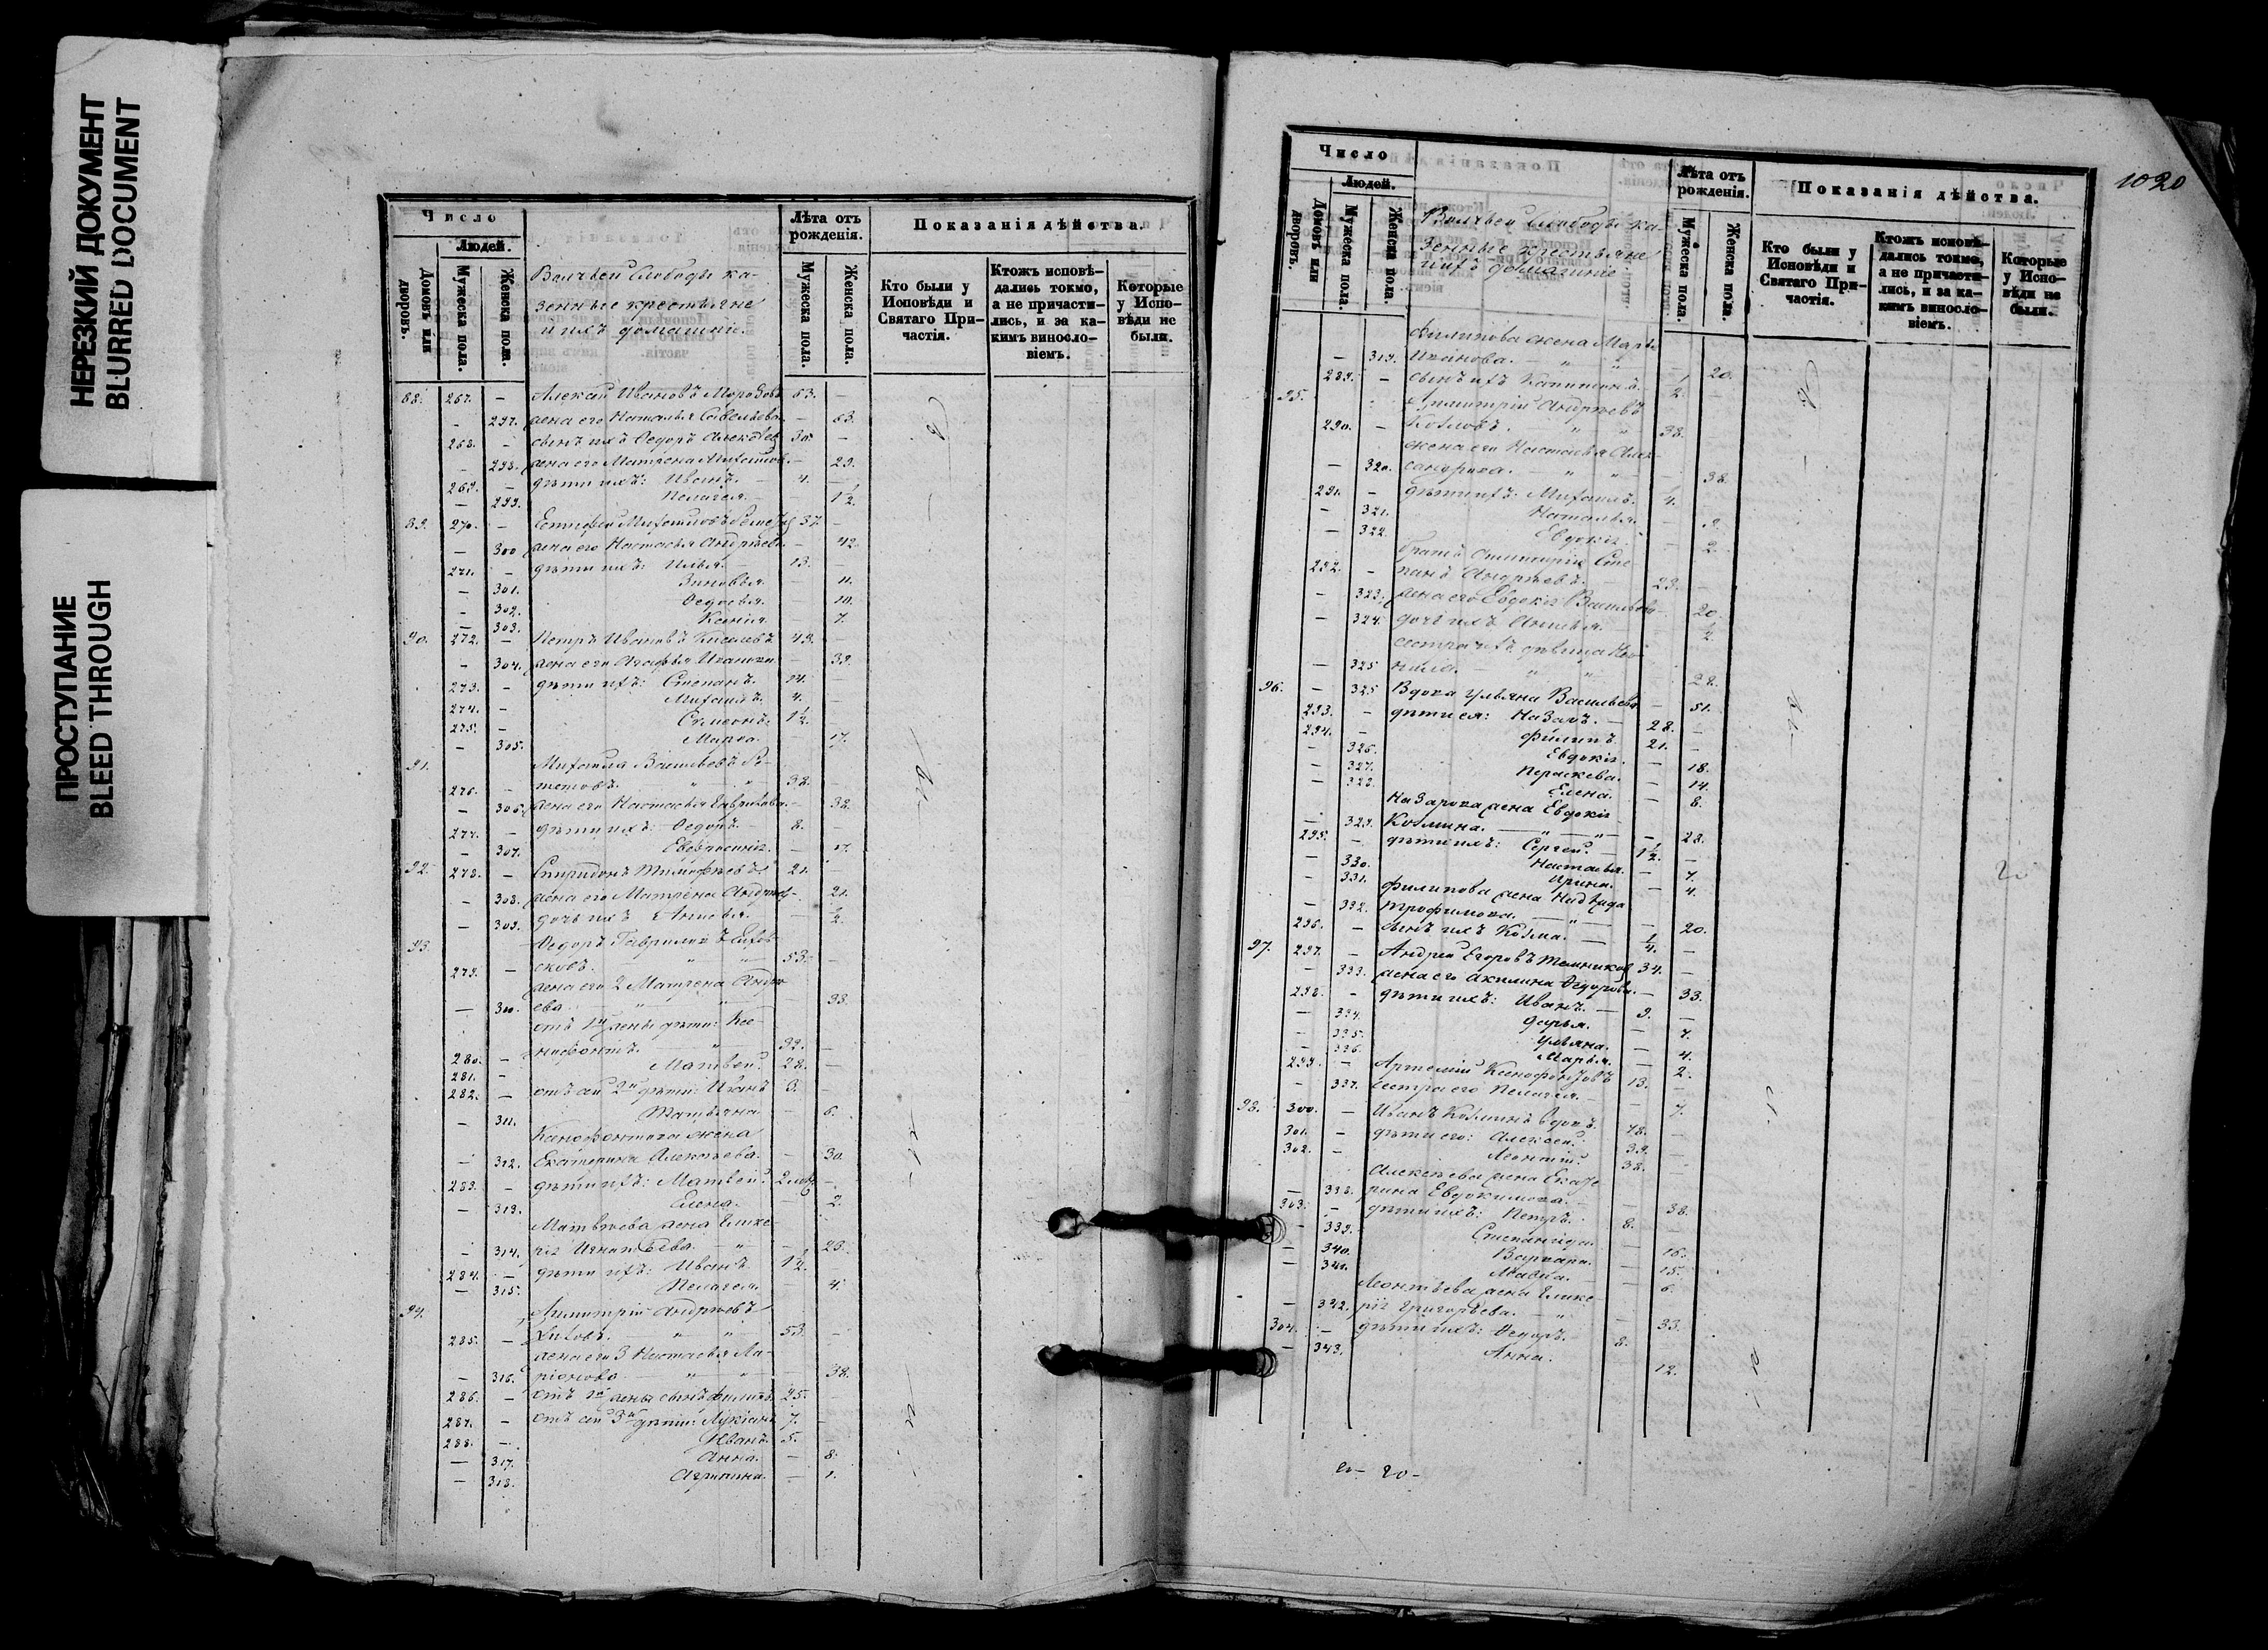 НЕРЕЗКИЙ ДОКУМЕНТ
BLURRED DOCUMENT
ПРОСТУПАНИЕ
BLEED THROUGH
Число
Людей.
Домовъ или дворовъ.
Мужеска пола.
Женска пола.
Волчьей Слободы ка-
зенные крестьяне
и ихъ домашни.
Лѣта отъ рожденія.
Мужеска пола.
Женска пола.
Показанія дѣйства.
Кто были у Исповѣди и Святаго Причастія.
Ктожъ исповѣдались токмо, а не причастились, и за какимъ винословіемъ.
Которые у Исповѣди не были.
88. 267. — Алексѣй Ивановъ Морозовъ 63. —
— 297. жена его Наталья Савельева — 63.
268. — сынъ ихъ Ѳедоръ 30. —
— 298. жена его Матрена — 29.
269. — дѣти ихъ: Иванъ. 4. —
— 299. Пелагея. — 1½.
89. 270. — Михайловъ 37. —
— 300 жена его Настасья Андреева — 42.
271. — дѣти ихъ: Илья. 13. —
— 301. Зиновья. — 11.
— 302. Ѳедосья. — 10.
— 303. Ксенія. — 7.
90. 272. — Петръ Ивановъ Киселевъ 49. —
— 304. жена его Агафья Иванова — 39.
273. — дѣти ихъ: Степанъ. 14. —
274. — Михаилъ. 4. —
275. — Симеонъ. 1½. —
— 305. Марѳа. — 17.
91. Михаила Васильевъ
276. — 38. —
— 306. жена его Настасья Гаврилова. — 38.
277. — дѣти ихъ: Ѳедоръ. 8. —
— 307. Евфросинія.
92. 278. — Спиридонъ Тимофеевъ 21. —
— 308. жена его Матрена Андреев. — 21.
— 309. дочь ихъ Анисья. — ½.
93. Ѳедоръ Гавриловъ
279. — 53. —
жена его 2 Матрена Андре
— 310. ева — 38.
отъ 1й жены дѣти: Ксе-
280. — нофонтъ. 32. —
281. — Матвей. 28. —
282. — отъ сей 2й дѣти: Иванъ —
— 311. Татьяна. — 6.
Ксенофонтова жена
— 312. Екатерина Алексѣева. — 30.
283. — дѣти ихъ: Матвей. —
— 313. Елена. — 2.
Матвѣева жена Глике-
— 314. рія Игнатьева. — 23.
284. — дѣти ихъ: Иванъ. 1½. —
— 315. Пелагея. — 4.
94. Димитрій Андреевъ
285. — 53. —
жена его 3 Настасья Ла-
— 316. ріонова — 38.
286. — отъ жены сынъ Филипъ 25. —
287. — отъ сей 3й дѣти: Лукіанъ 7. —
288. — Иванъ. 5. —
— 317. Анна. — 8.
— 318. Агрипина. — 1.
1020
Число
Людей.
Домовъ или дворовъ.
Мужеска пола.
Женска пола.
Волчьей Слободы ка-
зенные крестьяне
и ихъ домашніе
Лѣта отъ рожденія.
Мужеска пола.
Женска пола.
Показанія дѣйства.
Кто были у Исповѣди и Святаго Причастія.
Ктожъ исповѣдались токмо, а не причастились, и за какимъ винословіемъ.
Которые у Исповѣди не были.
Филипова жена Марѳа
— 319. Иванова. — 20.
289. — сынъ ихъ Капитонъ. ½. —
95. Димитрій Андреевъ
290. — Козловъ. 38. —
жена его Настасья Алек-
— 320. сандрова. — 38.
291. — дѣти ихъ: Михаилъ. 4. —
— 321. Наталья.
— 322. Евдокія. — 2.
братъ Димитрія Сте-
292. — панъ Андреевъ. 23. —
— 323. жена его Евдокія Васильева — 20.
— 324. дочь ихъ Анисья. — ½.
сестра ихъ дѣвица Нео-
— 325 нила. — 28.
96. — 325 Вдова Ульяна Васильева — 51.
293. — дѣти ея: Назаръ. 28. —
294. — Филипъ 21. —
— 326. Евдокія. — 18.
— 327. Параскева. — 14.
— 328. Елена. — 8.
Назарова жена Евдокія
— 329. Козмина. — 28.
295. — дѣти ихъ: Сергей. 1½. —
— 330. Настасья. — 7.
— 331. Ирина. — 4.
Филипова жена Надежда
— 332. Трофимова. — 20.
296. — сынъ ихъ Козма. ¼. —
97. 297. — Андрей Егоровъ Темниковъ 34. —
— 333. жена его Акилина Ѳедорова. — 33.
298. — дѣти ихъ: Иванъ. 9. —
— 334. Дарья. — 7.
— 335. Ульяна. — 4.
— 336. Марья. — 2.
299. — Артемій Ксенофонтовъ 13. —
— 337. сестра его Пелагея. — 7.
98. 300. — Иванъ Козминъ вдовъ. 78. —
301. — дѣти его: Алексей. 39. —
302. — Леонтій. 38. —
Алексеева жена Екате
— 338. рина Евдокимова. — 38.
303. — дѣти ихъ: Петръ. 8. —
— 339. Степанида. — 16.
— 340. Варвара. — 15.
— 341. Мавра. — 6.
Леонтьева жена Глике
— 342. рія Григорьева. — 33.
304. — дѣти ихъ: Ѳедоръ. 8. —
— 343. Анна. — 12.